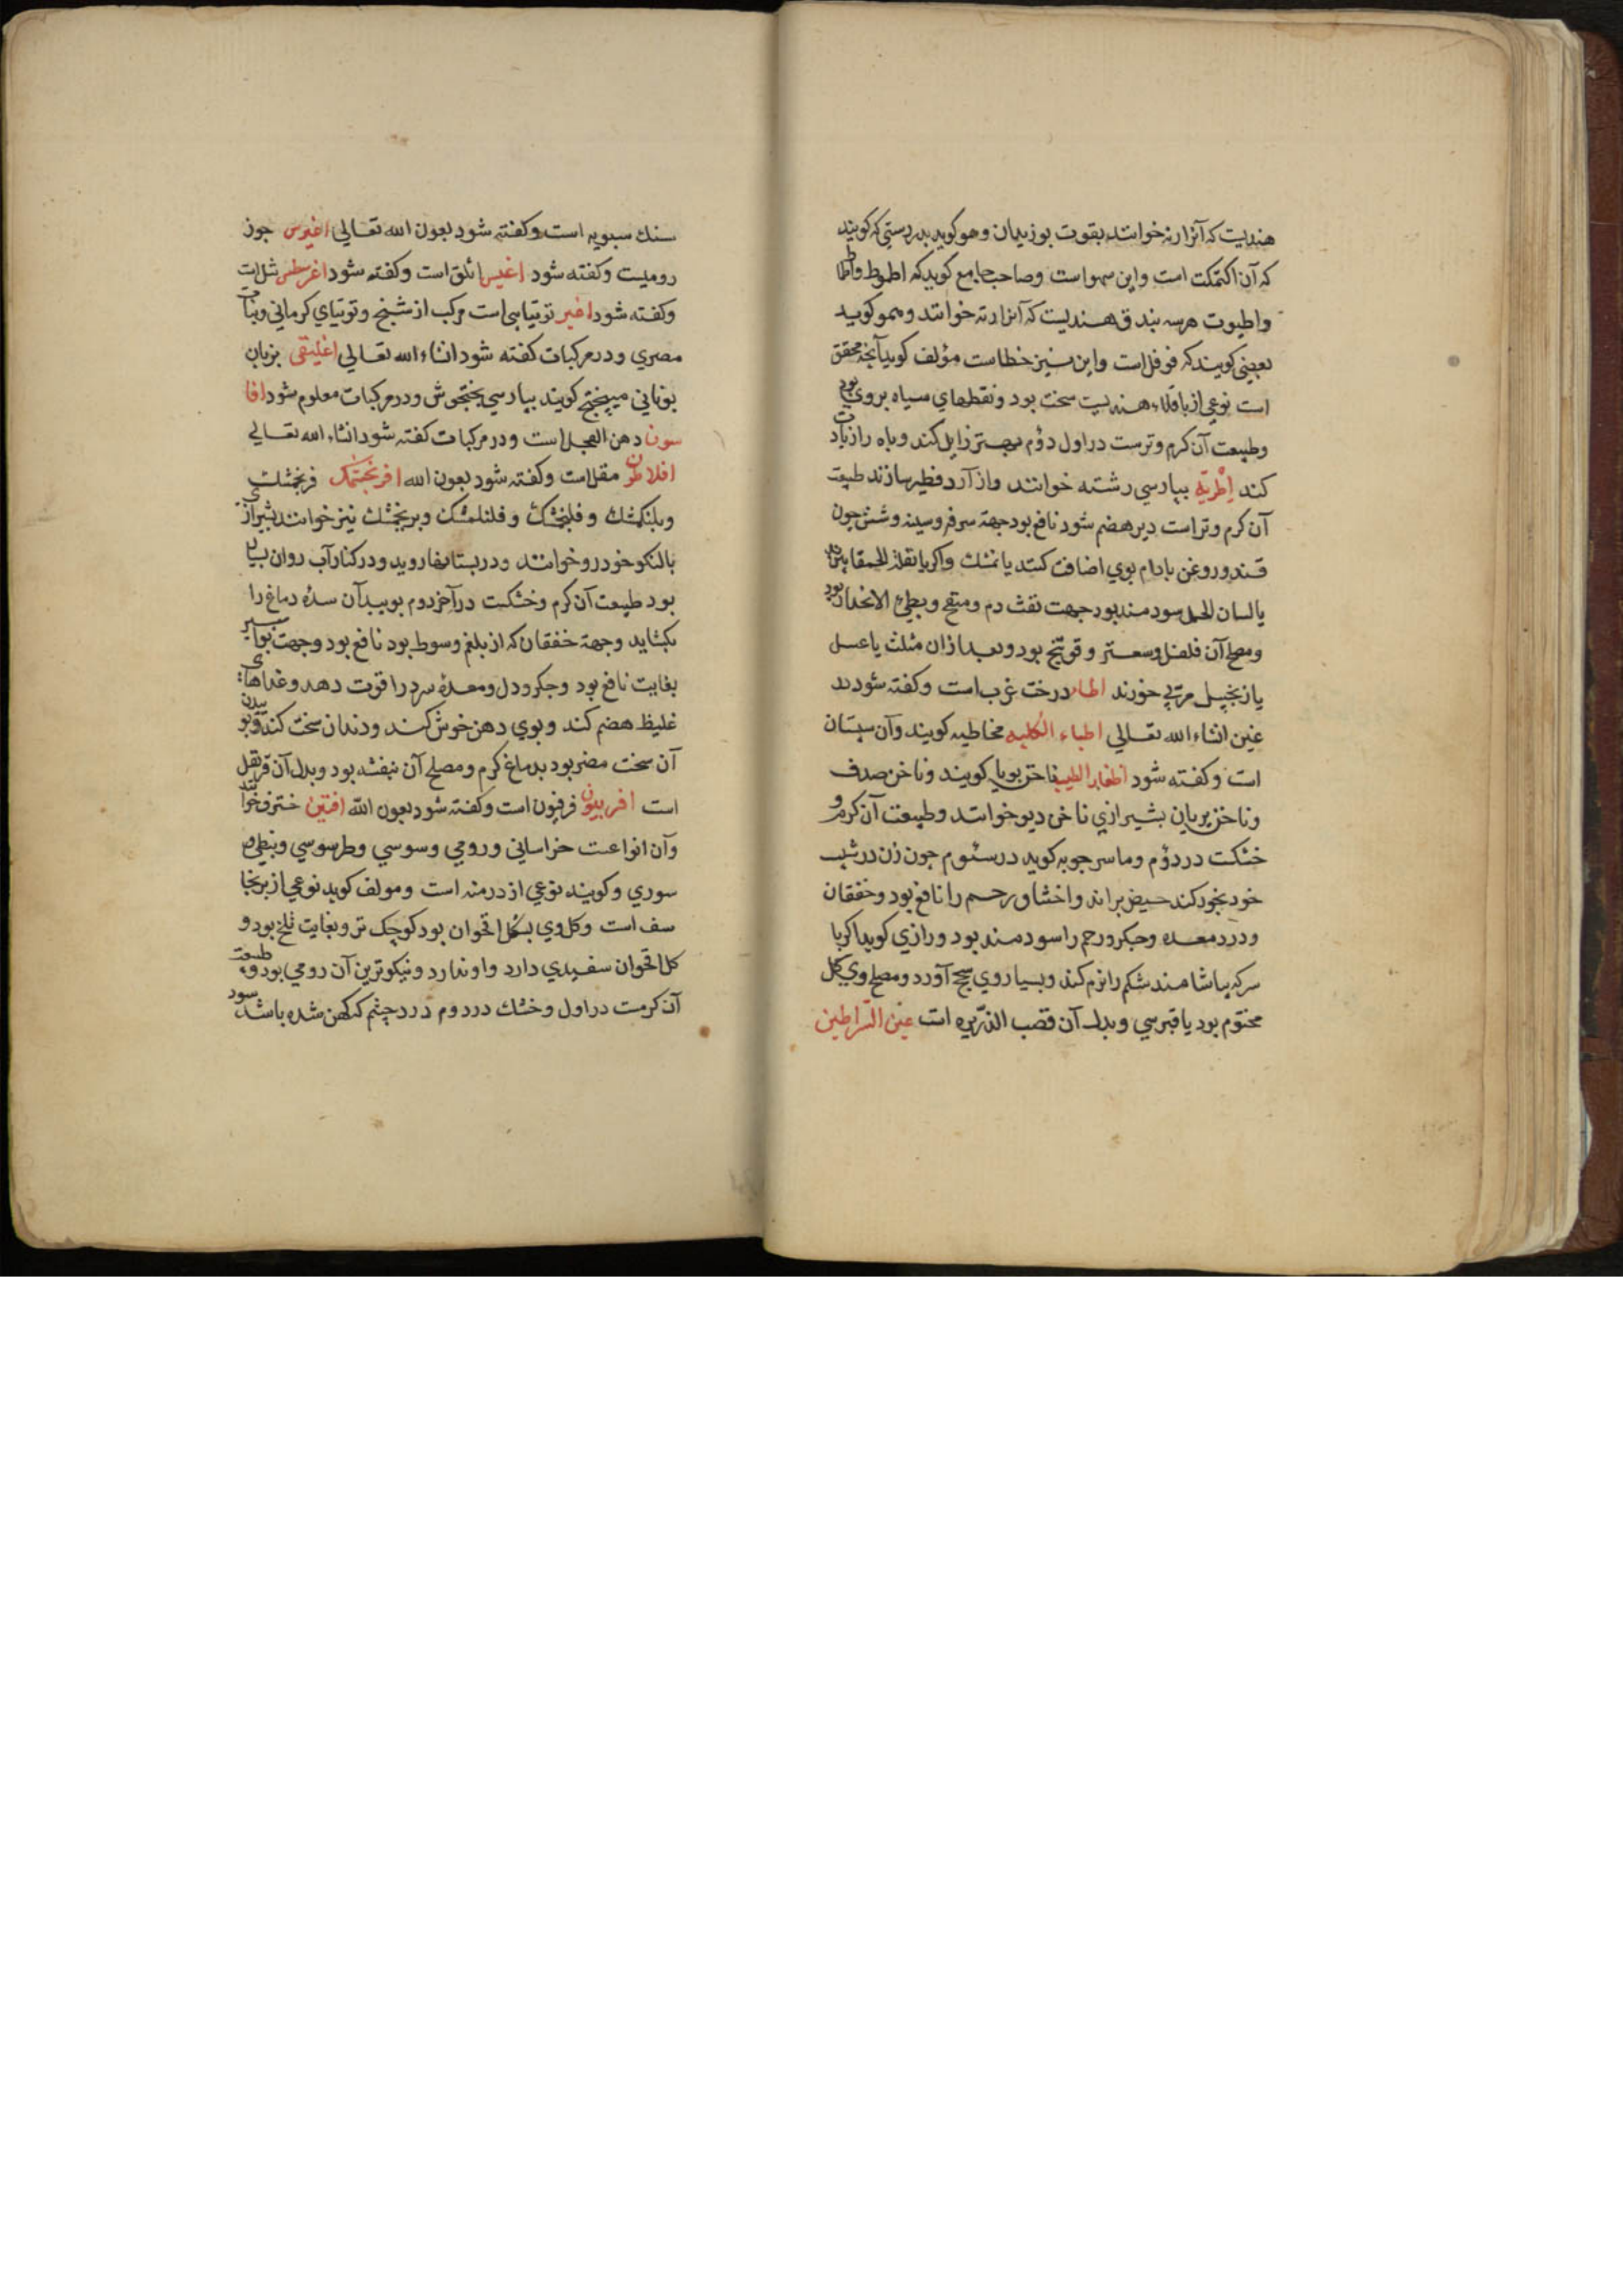 هندیست که آنرا رته خوانند بقوت بوزیدان و هو کوید بدرستی که کویند
که آن اکتمکت است و این سهو است و صاحب جامع کوید که اطوط و اطماط
و اطیوت هرسه بندق هندیست که آنرا رته خوانند و همو کوید
بعضی کویند که فوفل است و این نیز خطاست مؤلف کوید آنچه محقق
است نوعی از باقلاء هندیست سخت بود و نقطهای سیاه بروی بود
و طبیعت آن کرم و ترست در اول دؤم بهتر زایل کند و باه را زیادت
کند اطریه بپارسی رشته خوانند و از آرد فطیر سازند طبیعت
آن کرم و تر است دیر هضم شود نافع بود جهة سرفه و سینه و شش چون
قند و روغن بادام بوی اضافت کنند یا نمشك و اکر با بقلة الحمقا پزند
یا لسان الحمل سودمند بود جهت نفث دم و منقح و بطئ الانحدار بود
و مصلح آن فلفل و سعتر و فوتنج بود و بعد از ان مثلث یا عسل
یا زنجبیل مربی خورند اطاء درخت غرب است و کفته شود در
غین انشاء الله تعالی اطباء الکلبه مخاطیه کویند و آن سپستان
است و کفته شود اظفار الطیب ناخن بویا کویند و ناخن صدف
و ناخن پریان بشیرازی ناخن دیو خوانند و طبیعت آن کرم و
خشکت در دؤم و ماسرجویه کوید در سئوم چون زن در شیب
خود بخور کند حیض براند و اختناق رحم را نافع بود و خفقان
و درد معده و جکر و رحم را سودمند بود و رازی کوید اکر با
سرکه بیاشامند شکم را نرم کند و بسیار وی سحج آورد و مصلح وی کل
مختوم بود یا قبرسی و بدل آن قصب الذریره است عین السراطین
سنك سبویه است و کفته شود بعون الله تعالی اغیرس جوز
رومیست و کفته شود اغیس ائلق است و کفته شود اغرسطس ثیل است
و کفته شود اغبر توتیایی است مرکب از شیخ و توتیای کرمانی و نبات
مصری و در مرکبات کفته شود انشاء الله تعالی اغلیقی بزبان
یونانی میپختج کویند بپارسی پختجوش و در مرکبات معلوم شود افا
سون دهن العجل است و در مرکبات کفته شود انشاء الله تعالی
افلاطن مقل است و کفته شود بعون الله افرنجمشک فرنجمشك
و بلنکمشك و فلنجمشك و فلنلمشك و برنجمشك نیز خوانند بشیرازی
بالنکو خودرو خوانند و در بستانها روید و در کنار آب روان بسیار
بود طبیعت آن کرم و خشکت در آخر دوم بوییدن آن سدّه دماغ را
بکشاید و جهة خفقان که از بلغم و سوط بود نافع بود و جهت بواسیر
بغایت نافع بود و جکر و دل و معده سرد را قوت دهد و غذاهای
غلیظ هضم کند و بوی دهن خوش کند و دندان سخت کند و بوییدن
آن سخت مضر بود بدماغ کرم و مصلح آن بنفشه بود و بدل آن قرنفل
است افربیون فرفیون است و کفته شود بعون الله افتین خترف خوانند
و آن انواعست خراسانی و رومی و سوسی و طرسوسی و نبطی و
سوری و کویند نوعی از درمنه است و مولف کوید نوعی از برنجا
سف است و کل وی بشکل اقحوان بود کوچک تر و بغایت تلخ بود و
کل اقحوان سفیدی دارد و او ندارد و نیکوترین آن رومی بود و طبیعت
آن کرمست در اول و خشك در دوم درد چشم که کهن شده باشد سود